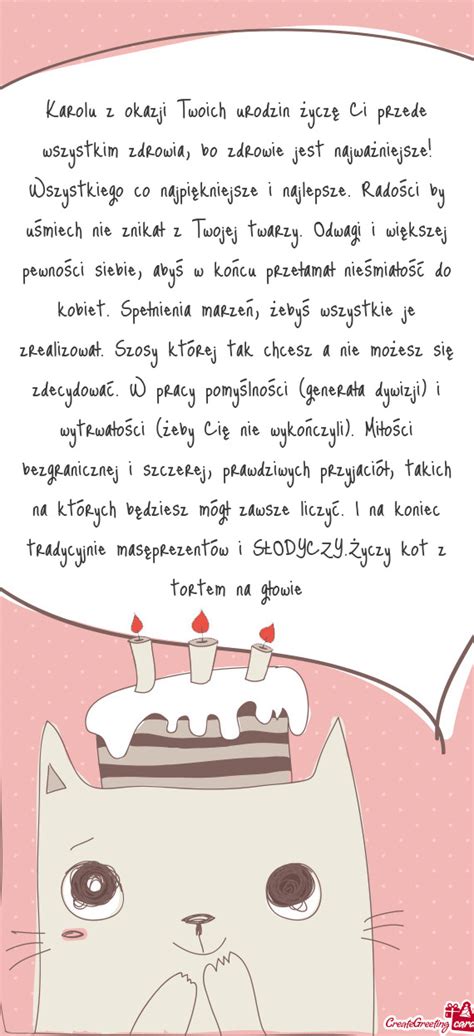 Karolu z okazji Twoich urodzin życzę Ci przede
wszystkim zdrowia, bo zdrowie jest najważniejsze!
Wszystkiego co najpiękniejsze i najlepsze. Radości by
uśmiech nie znikał z Twojej twarzy. Odwagi i większej
pewności siebie, abyś w końcu przełamał nieśmiałość do
kobiet. Spełnienia marzeń, żebyś wszystkie je
zrealizował. Szosy której tak chcesz a nie możesz się
zdecydować. W pracy pomyślności (generała dywizji) i
wytrwałości (żeby Cię nie wykończyli). Miłości
bezgranicznej i szczerej, prawdziwych przyjaciół, takich
na których będziesz mógł zawsze liczyć. I na koniec
tradycyjnie masęprezentów i SŁODYCZY.Życzy kot z
tortem na głowie
CreateGreeting cards